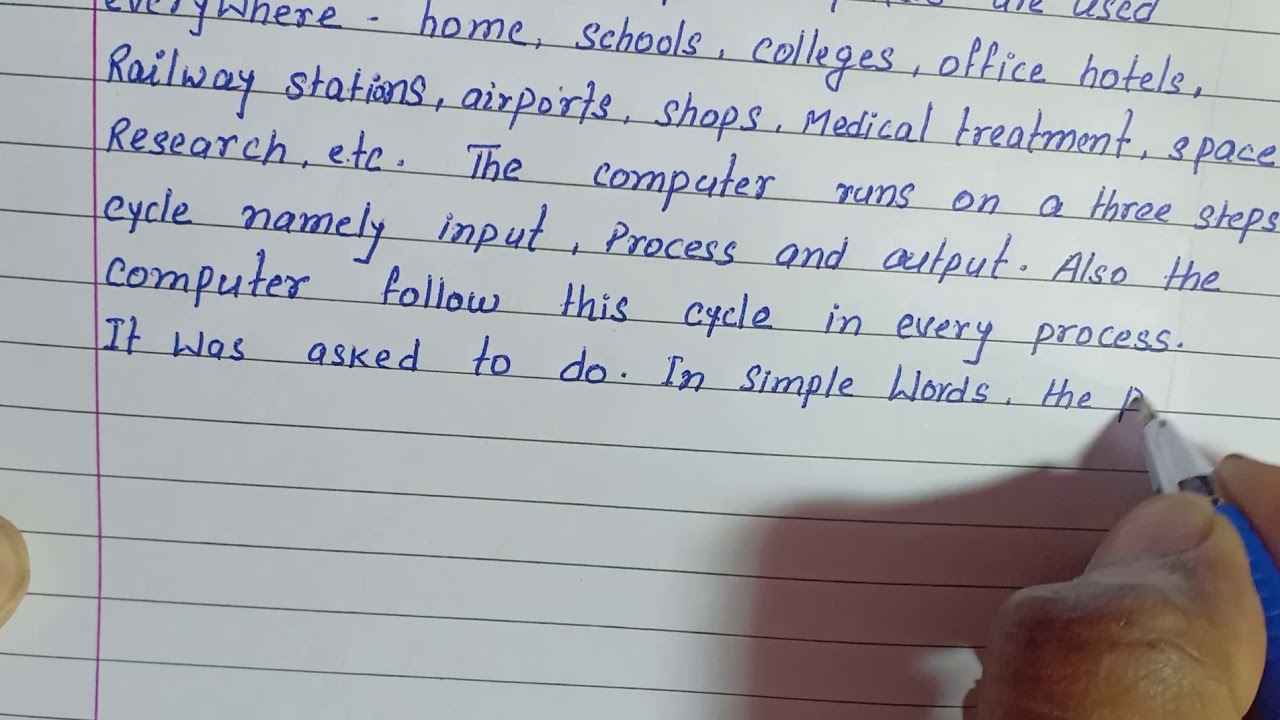 everywhere - home, schools, colleges, office hotels, are used
Railway stations, airports, shops, Medical treatment, space
Research, etc. The computer runs on a three steps
cycle namely input, Process and output. Also the
computer follow this cycle in every process.
It was asked to do. In simple Words, the